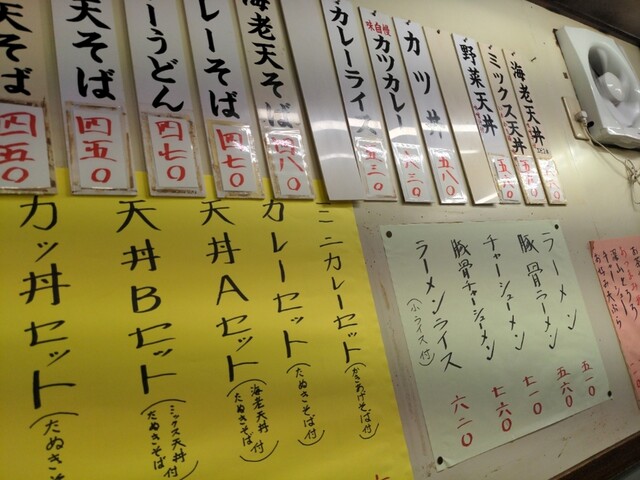 海老天丼
ミックス天丼
野菜天丼
カツ丼 五八〇
味自慢
カツカレー
カレーライス 五三〇
海老天そば 四八〇
レーそば 四七〇
ーうどん 四七〇
天そば 四五〇
天そば 四五〇
ラーメン 五一〇
豚骨ラーメン 五六〇
チャーシューメン 七一〇
豚骨チャーシューメン 七六〇
ラーメンライス(小ライス付) 六二〇
ミニカレーセット(かきあげそば付)
カレーセット(たぬきそば付)
天丼Aセット(海老天丼付
たぬきそば付)
天丼Bセット(ミックス天丼付
たぬきそば付)
カツ丼セット(たぬきそば